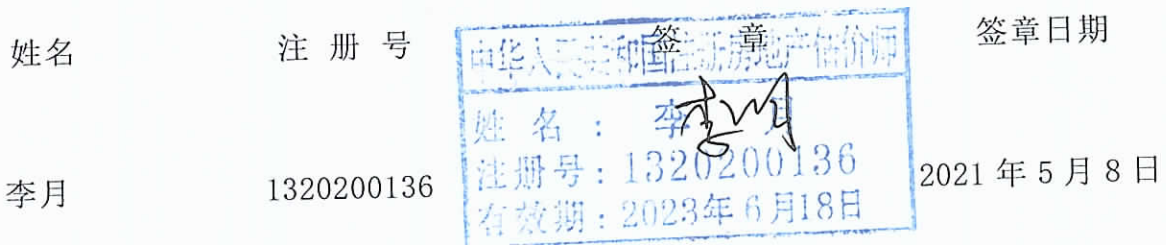 姓名 注册号 签章 签章日期
中华人民共和国注册房地产估价师
姓名：李月
注册号：1320200136
有效期：2023年6月18日
李月 1320200136 2021年5月8日